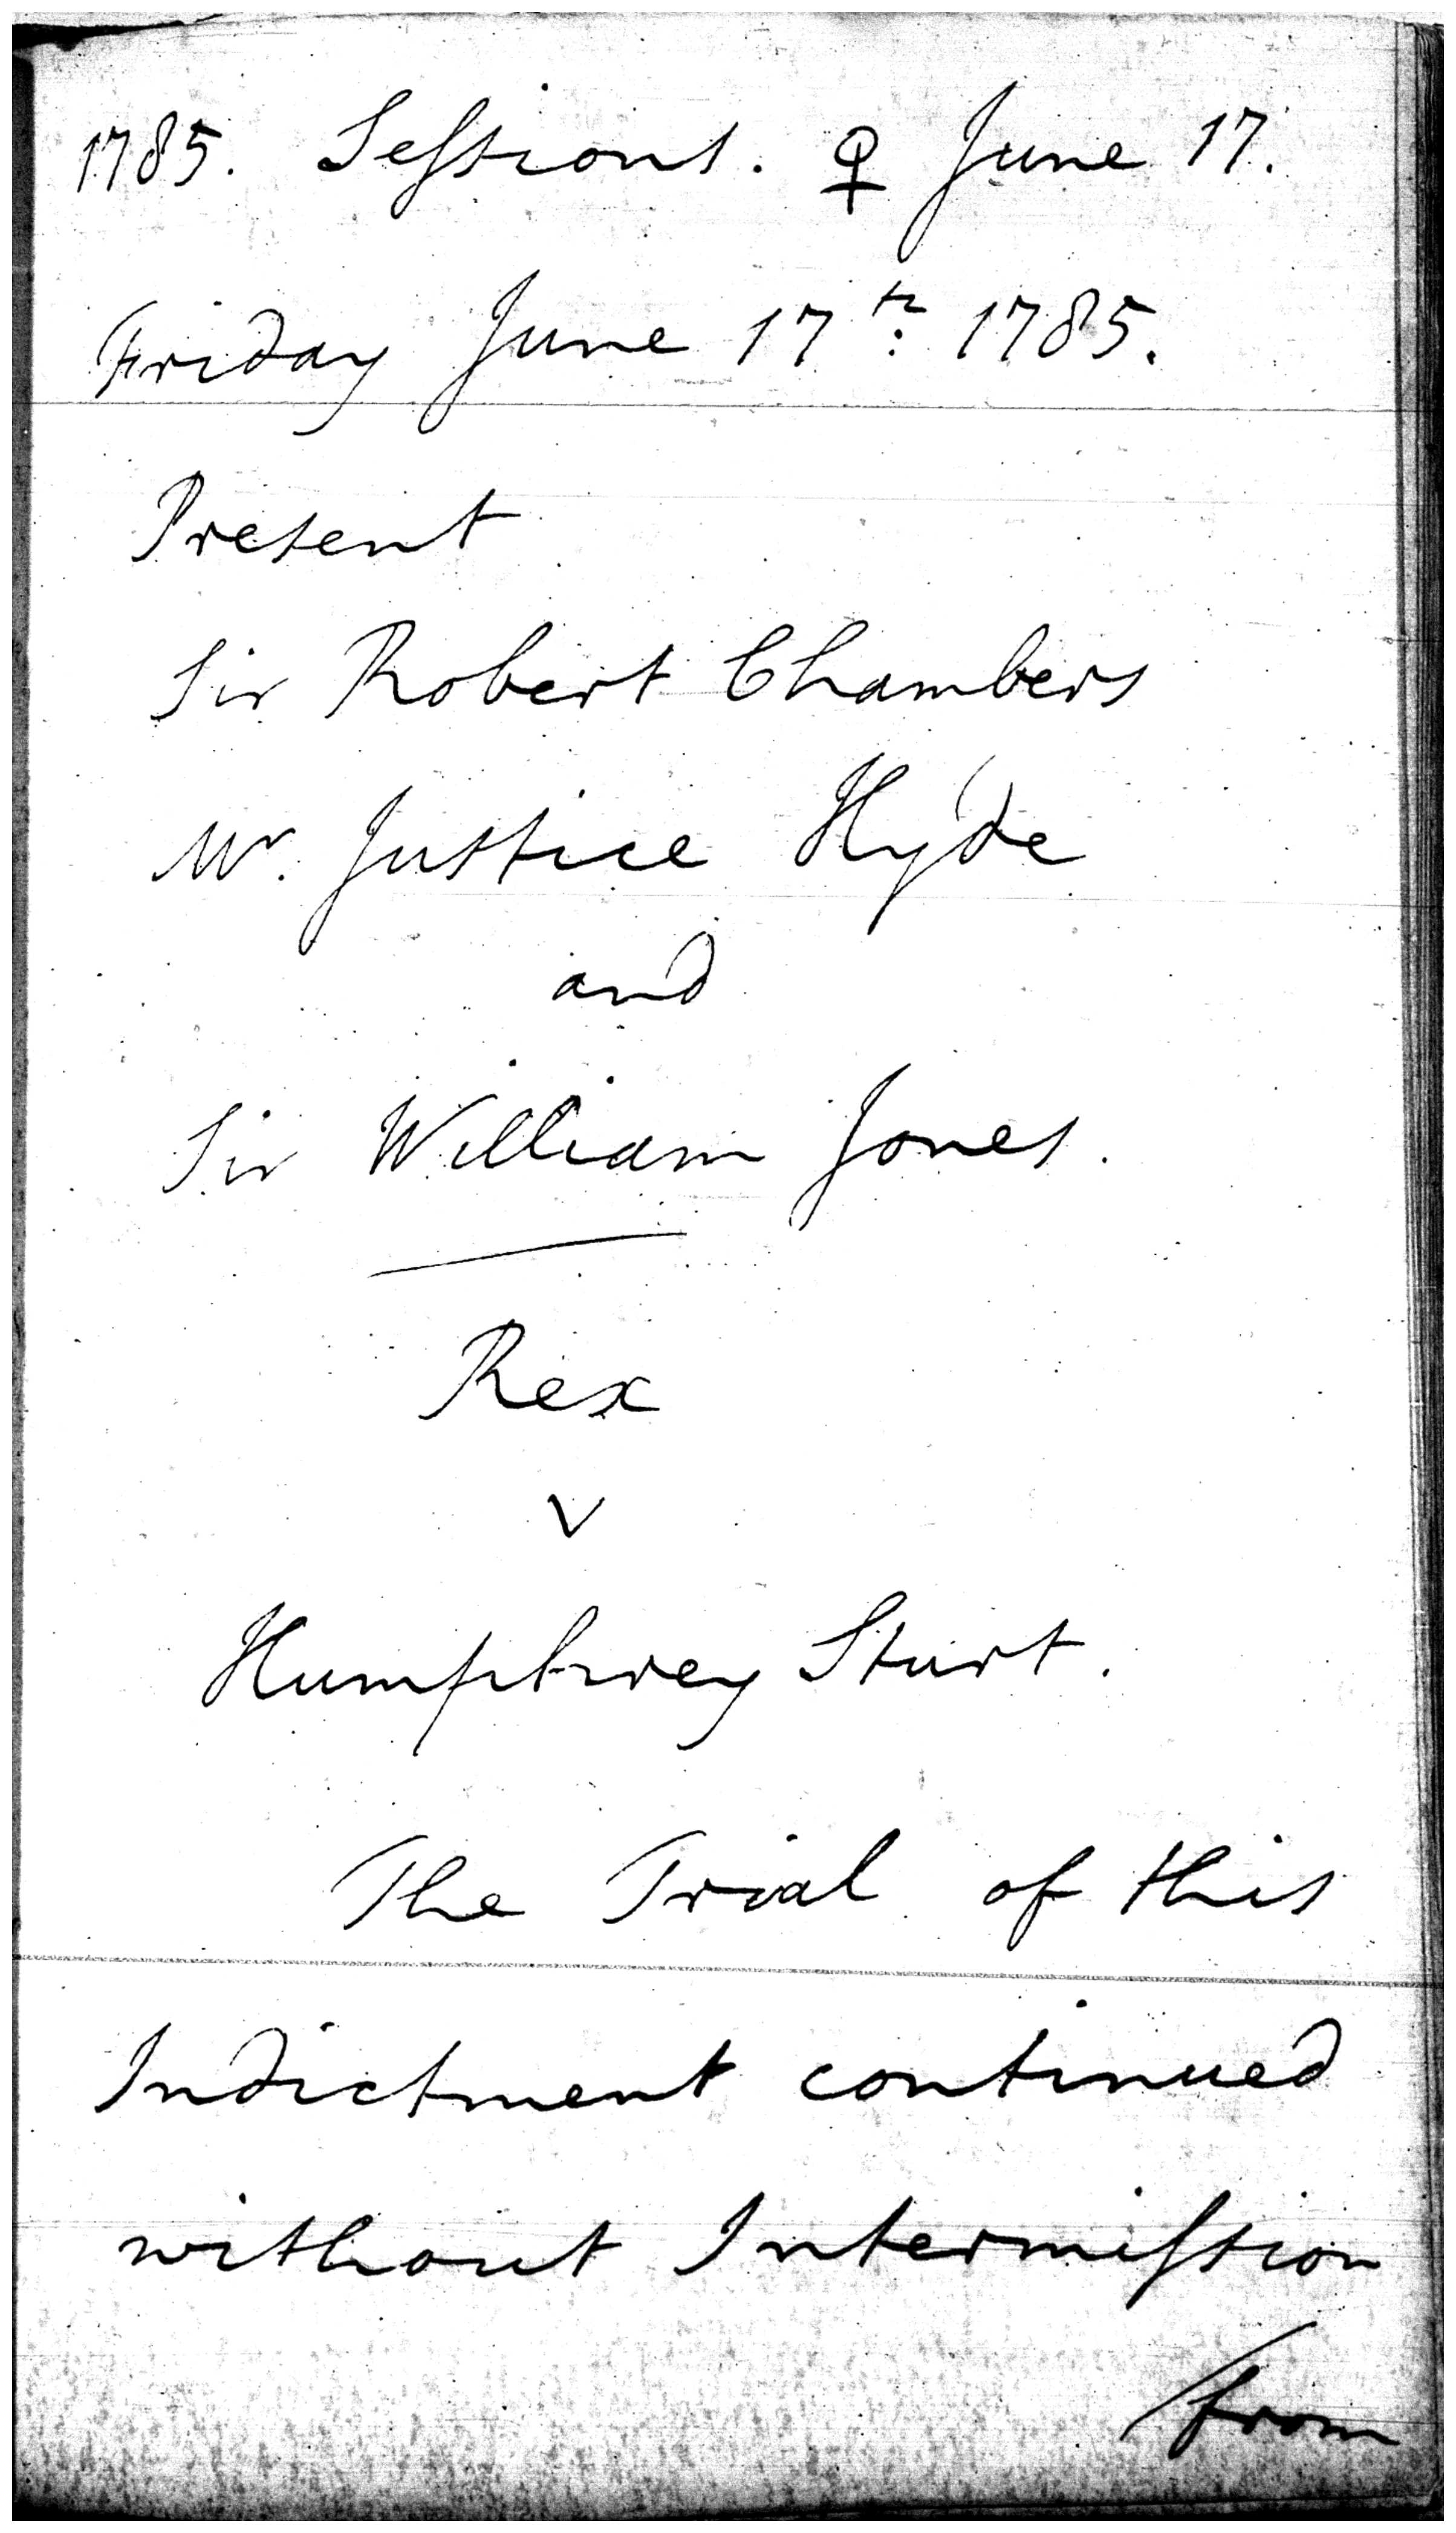 1785. Seſsions. ♀ June 17.
Friday June 17th: 1785.
Present
Sir Robert Chambers
Mr. Justice Hyde
and
Sir William Jones.
Rex
v
Humphrey Sturt.
The Trial of this
Indictment continued
without Intermiſsion
from